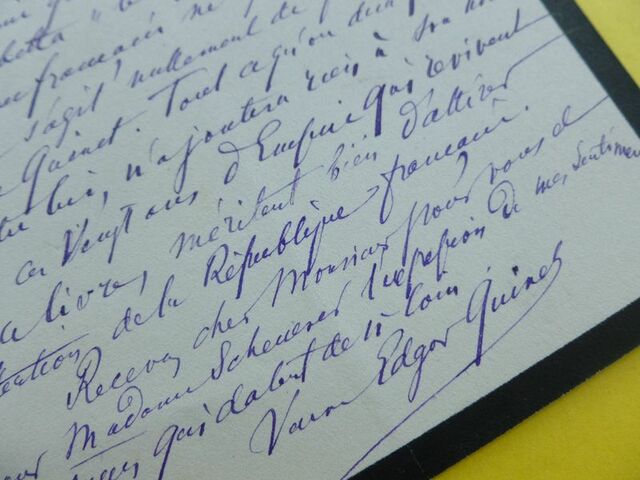 française ne
s'agit nullement de
Quinet. Tout ce qu'on dira
lui, n'ajoutera rien à son
ces Vingt ans d'Empire qui revivent
livres, méritent bien d'attirer
de la République française.
Recevez cher Monsieur pour vous &
Madame Scheurer l'expression de mes sentimen
qui datent de si loin.
Edgar Quinet